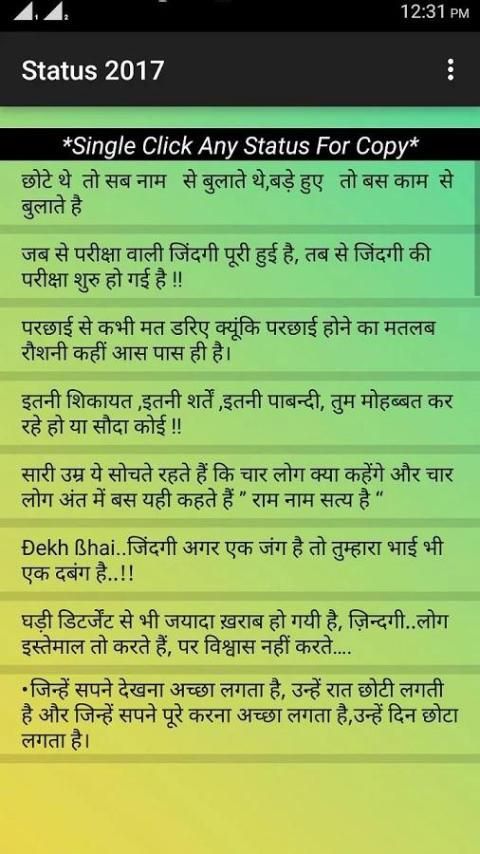 12:31 PM
Status 2017
*Single Click Any Status For Copy*
छोटे थे तो सब नाम से बुलाते थे,बड़े हुए तो बस काम से
बुलाते है
जब से परीक्षा वाली जिंदगी पूरी हुई है, तब से जिंदगी की
परीक्षा शुरु हो गई है !!
परछाई से कभी मत डरिए क्यूंकि परछाई होने का मतलब
रौशनी कहीं आस पास ही है।
इतनी शिकायत ,इतनी शर्तें ,इतनी पाबन्दी, तुम मोहब्बत कर
रहे हो या सौदा कोई !!
सारी उम्र ये सोचते रहते हैं कि चार लोग क्या कहेंगे और चार
लोग अंत में बस यही कहते हैं ” राम नाम सत्य है “
Đekh ßhai..जिंदगी अगर एक जंग है तो तुम्हारा भाई भी
एक दबंग है..!!
घड़ी डिटर्जेंट से भी जयादा ख़राब हो गयी है, ज़िन्दगी..लोग
इस्तेमाल तो करते हैं, पर विश्वास नहीं करते....
•जिन्हें सपने देखना अच्छा लगता है, उन्हें रात छोटी लगती
है और जिन्हें सपने पूरे करना अच्छा लगता है,उन्हें दिन छोटा
लगता है।